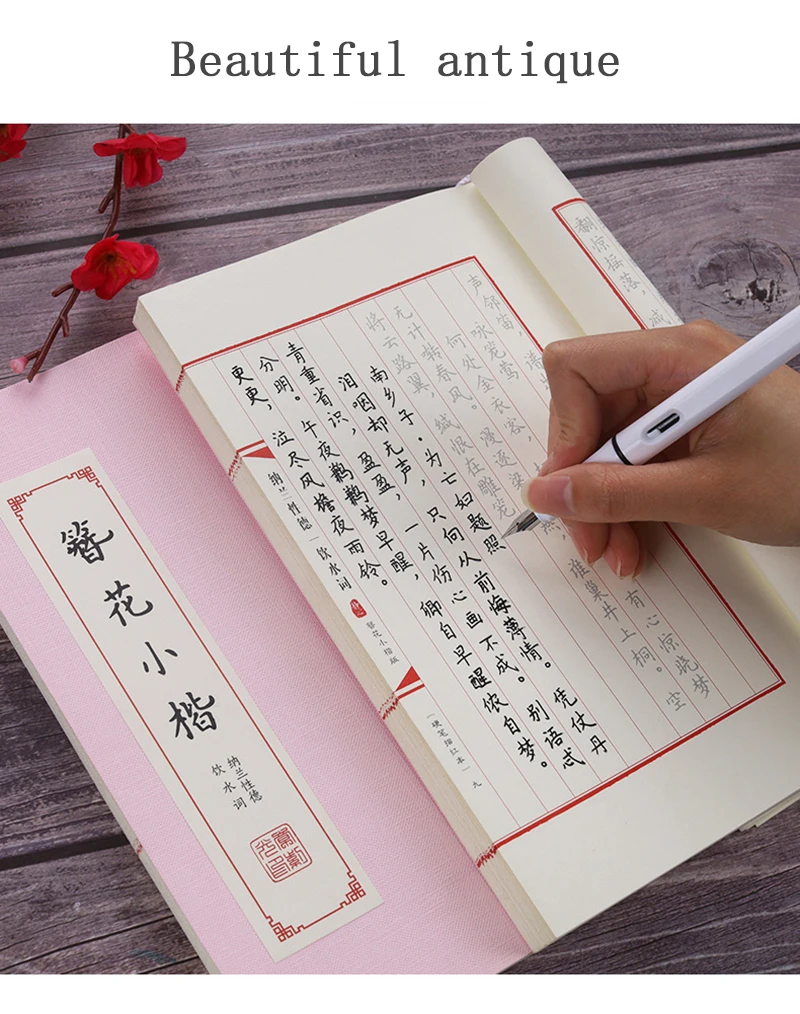 Beautiful antique
翻惊摇落，减
声邻笛，
咏笼莺
何处金衣客，
有心惊晓梦
无计转春风。漫逐梁
燕，谁巢井上桐。空
将云路翼，缄恨在雕笼
南乡子·为亡妇题照
泪咽却无声，只向从前悔薄情。凭仗丹
青重省识，盈盈，一片伤心画不成。别语忒
分明。午夜鹣鹣梦早醒，卿自早醒侬自梦。
更更，泣尽风檐夜雨铃。
纳兰性德|饮水词
簪花小楷版
（硬笔描红本）九
簪花小楷
纳兰性德
饮水词